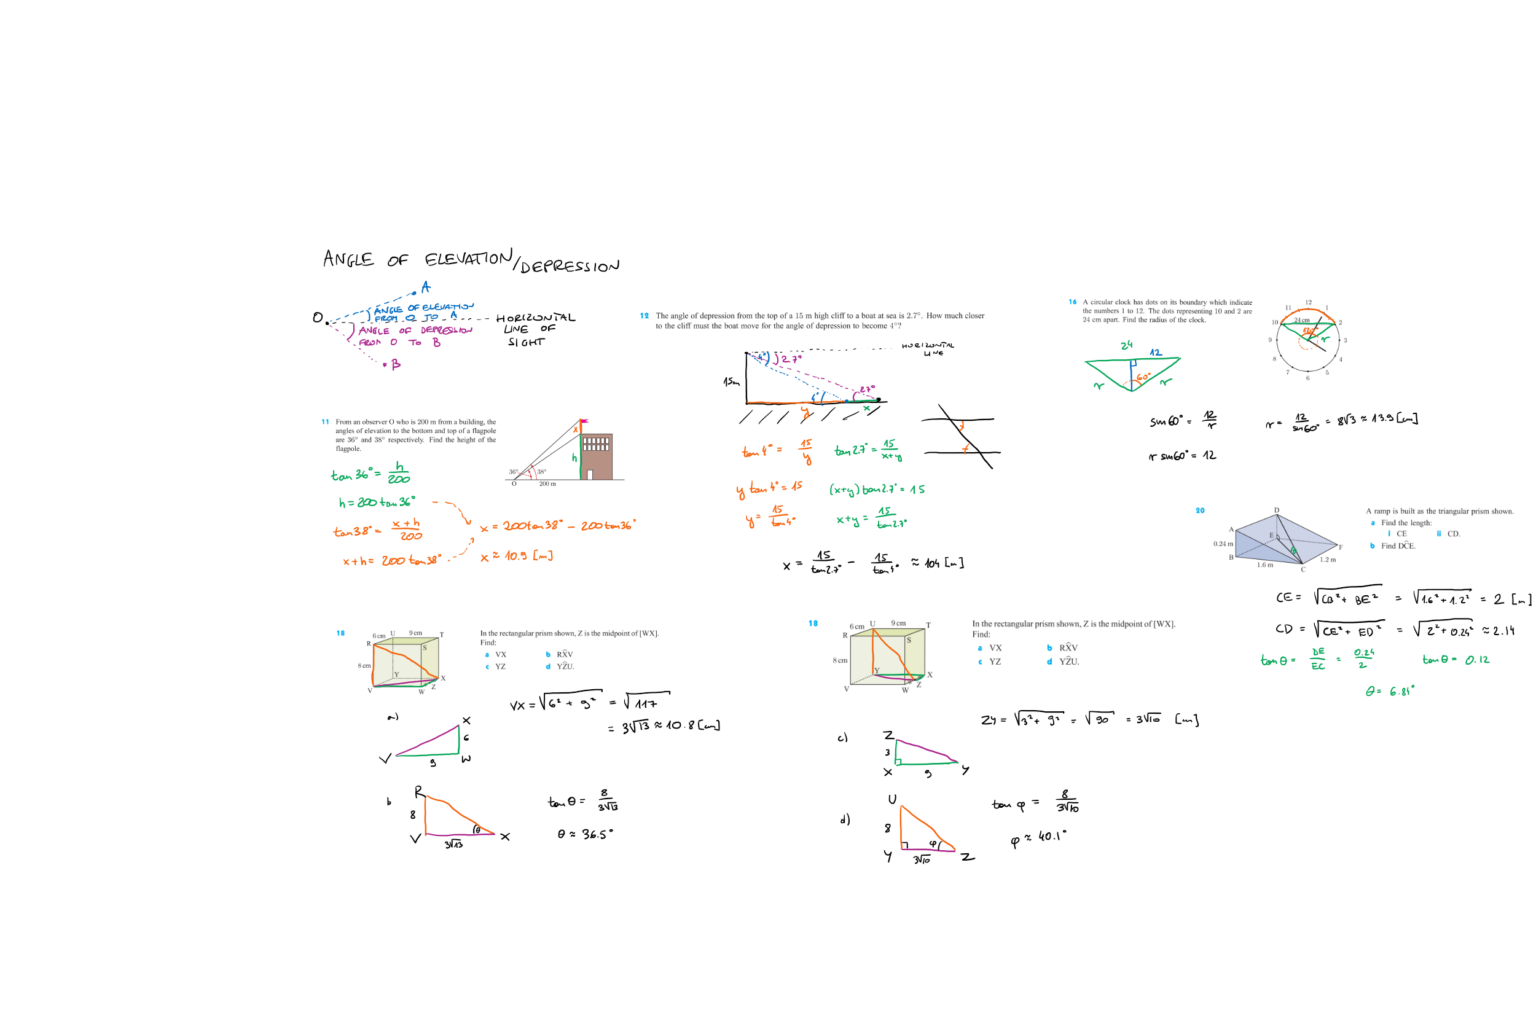 ANGLE OF ELEVATION/DEPRESSION
A
O
ANGLE OF ELEVATION
FROM O TO A
ANGLE OF DEPRESSION
FROM O TO B
B
HORIZONTAL
LINE OF
SIGHT
11 From an observer O who is 200 m from a building, the
angles of elevation to the bottom and top of a flagpole
are 36° and 38° respectively. Find the height of the
flagpole.
x
h
36° 38°
O 200 m
tan 36° = h/200
h = 200 tan 36°
tan 38° = x+h/200
x+h = 200 tan 38°
x = 200 tan 38° - 200 tan 36°
x ≈ 10.9 [m]
12 The angle of depression from the top of a 15 m high cliff to a boat at sea is 2.7°. How much closer
to the cliff must the boat move for the angle of depression to become 4°?
HORIZONTAL
LINE
4° 2.7°
15m
4° 2.7°
y x
tan 4° = 15/y
tan 2.7° = 15/x+y
y tan 4° = 15
(x+y) tan 2.7° = 15
y = 15/tan 4°
x+y = 15/tan 2.7°
x = 15/tan 2.7° - 15/tan 4° ≈ 104 [m]
16 A circular clock has dots on its boundary which indicate
the numbers 1 to 12. The dots representing 10 and 2 are
24 cm apart. Find the radius of the clock.
12
11 1
10 24 cm 2
120°
r
9 3
8 4
7 5
6
24
12
60°
r r
sin 60° = 12/r
r sin 60° = 12
r = 12/sin 60° = 8√3 ≈ 13.9 [cm]
20 A ramp is built as the triangular prism shown.
a Find the length:
i CE ii CD.
b Find DĈE.
D
A
E
0.24 m
B
F
1.6 m
C
1.2 m
θ
CE = √CB² + BE² = √1.6² + 1.2² = 2 [m]
CD = √CE² + ED² = √2² + 0.24² ≈ 2.14
tan θ = DE/EC = 0.24/2
tan θ = 0.12
θ = 6.84°
18 In the rectangular prism shown, Z is the midpoint of [WX].
Find:
a VX b RX̂V
c YZ d YẐU.
6 cm U 9 cm T
R
S
8 cm
Y
X
V W Z
a)
X
6
V 9 W
VX = √6² + 9² = √117
= 3√13 ≈ 10.8 [cm]
b
R
8
V 3√13 X
θ
tan θ = 8/3√13
θ ≈ 36.5°
18 In the rectangular prism shown, Z is the midpoint of [WX].
Find:
a VX b RX̂V
c YZ d YẐU.
6 cm U 9 cm T
R
S
8 cm
Y
X
V W Z
c)
Z
3
X 9 Y
ZY = √3² + 9² = √90 = 3√10 [cm]
d)
U
8
Y 3√10 Z
φ
tan φ = 8/3√10
φ ≈ 40.1°